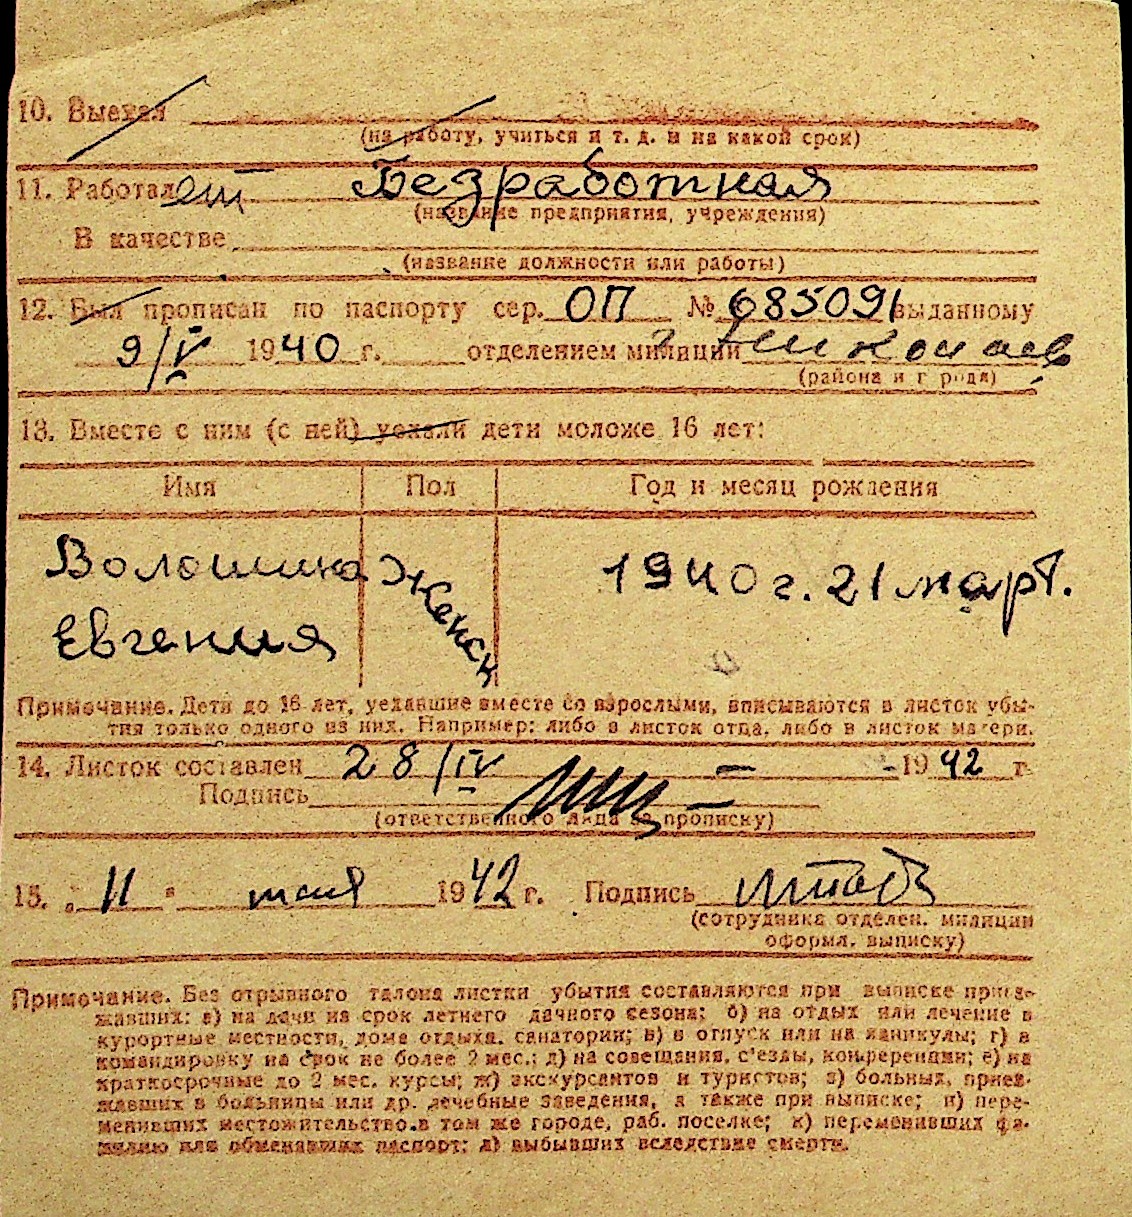 10. Выехал
(на работу, учиться и т. д. и на какой срок)
11. Работает Безработная
(название предприятия, учреждения)
В качестве
(название должности или работы)
12. Был прописан по паспорту сер. ОП № 685091 выданному
9/IV 1940 г. отделением милиции г. Николаев
(района и города)
13. Вместе с ним (с ней) уехали дети моложе 16 лет:
Имя Пол Год и месяц рождения
Волошина Женск 1940 г. 21 март.
Евгения
Примечание. Дети до 16 лет, уехавшие вместе со взрослыми, вписываются в листок убы-
тия только одного из них. Например: либо в листок отца, либо в листок матери.
14. Листок составлен 28/IV – 1942 г.
Подпись
(ответственного лица за прописку)
15. „11" мая 1942 г. Подпись
(сотрудника отделен. милиции
оформл. выписку)
Примечание. Без отрывного талона листки убытия составляются при выписке приез-
жавших: а) на дачи на срок летнего дачного сезона; б) на отдых или лечение в
курортные местности, дома отдыха, санатории; в) в отпуск или на каникулы; г) в
командировку на срок не более 2 мес.; д) на совещания, с'езды, конференции; е) на
краткосрочные до 2 мес. курсы; ж) экскурсантов и туристов; з) больных, приез-
жавших в больницы или др. лечебные заведения, а также при выписке; и) пере-
менивших местожительство в том же городе, раб. поселке; к) переменивших фа-
милию или обменявших паспорт; л) выбывших вследствие смерти.